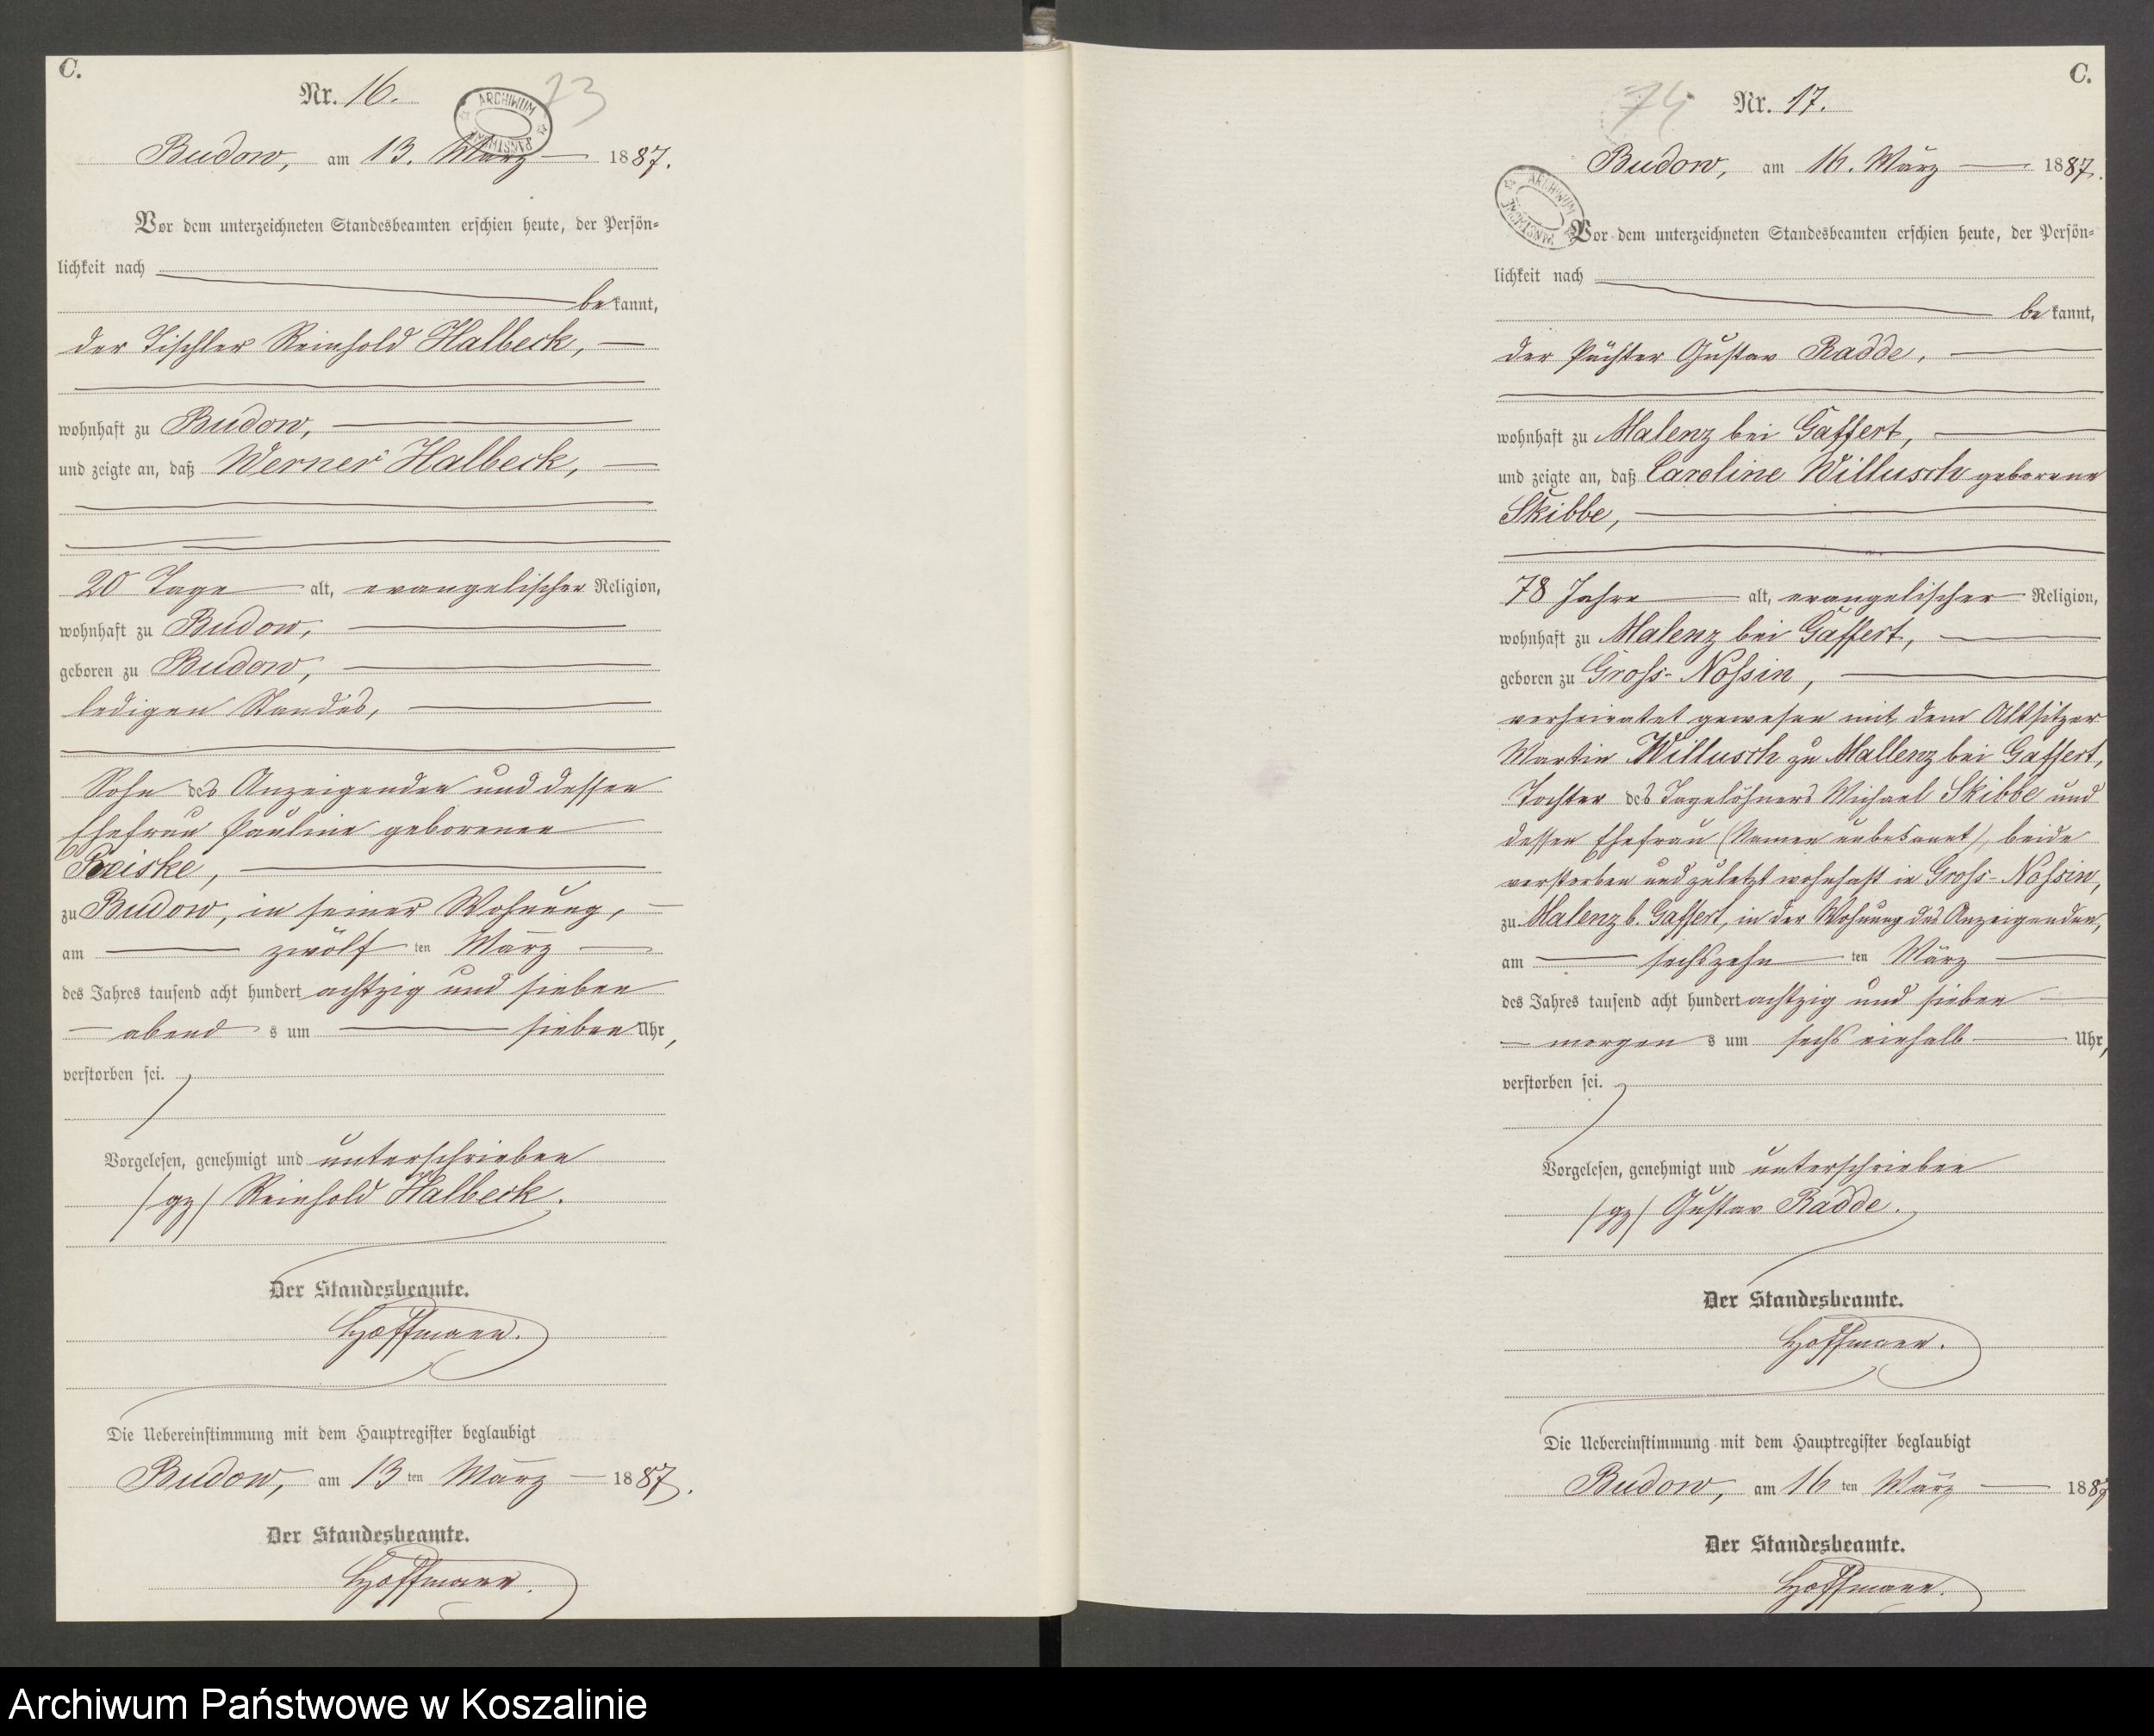 C.
Nr. 16.
73
ARCHIWUM PAŃSTWOWE
Budow, am 13. März 1887.
Vor dem unterzeichneten Standesbeamten erschien heute, der Persön-
lichkeit nach
bekannt,
der Tischler Reinhold Halbeck,
wohnhaft zu Budow,
und zeigte an, daß Werner Halbeck,
20 Tage alt, evangelischer Religion,
wohnhaft zu Budow,
geboren zu Budow,
ledigen Standes,
Sohn des Anzeigenden und dessen
Ehefrau Pauline geborenen
zu Budow, in seiner Wohnung,
am zwölf ten März
des Jahres tausend acht hundert achtzig und sieben
abend s um sieben Uhr,
verstorben sei.
Vorgelesen, genehmigt und unterschrieben
/gz/ Reinhold Halbeck.
Der Standesbeamte.
Hoffmann.
Die Uebereinstimmung mit dem Hauptregister beglaubigt
Budow, am 13 ten März 1887.
Der Standesbeamte.
Hoffmann.
C.
74
Nr. 17.
ARCHIWUM PAŃSTWOWE
Budow, am 16. März 1887.
Vor dem unterzeichneten Standesbeamten erschien heute, der Persön-
lichkeit nach
bekannt,
der Pächter Gustav Radde,
wohnhaft zu Malenz bei Gaffert,
und zeigte an, daß Caroline Willusch geborene
Skibbe,
78 Jahre alt, evangelischer Religion,
wohnhaft zu Malenz bei Gaffert,
geboren zu Gross-Nossin,
verheiratet gewesen mit dem Altsitzer
Martin Willusch zu Mallenz bei Gaffert,
Tochter des Tagelöhners Michael Skibbe und
dessen Ehefrau (Namen unbekannt), beide
verstorben und zuletzt wohnhaft in Gross-Nossin,
zu Malenz b. Gaffert, in der Wohnung des Anzeigenden,
am sechszehn ten März
des Jahres tausend acht hundert achtzig und sieben
morgen s um sechs einhalb Uhr,
verstorben sei.
Vorgelesen, genehmigt und unterschrieben
/gz/ Gustav Radde.
Der Standesbeamte.
Hoffmann.
Die Uebereinstimmung mit dem Hauptregister beglaubigt
Budow, am 16 ten März 1887
Der Standesbeamte.
Hoffmann.
Archiwum Państwowe w Koszalinie